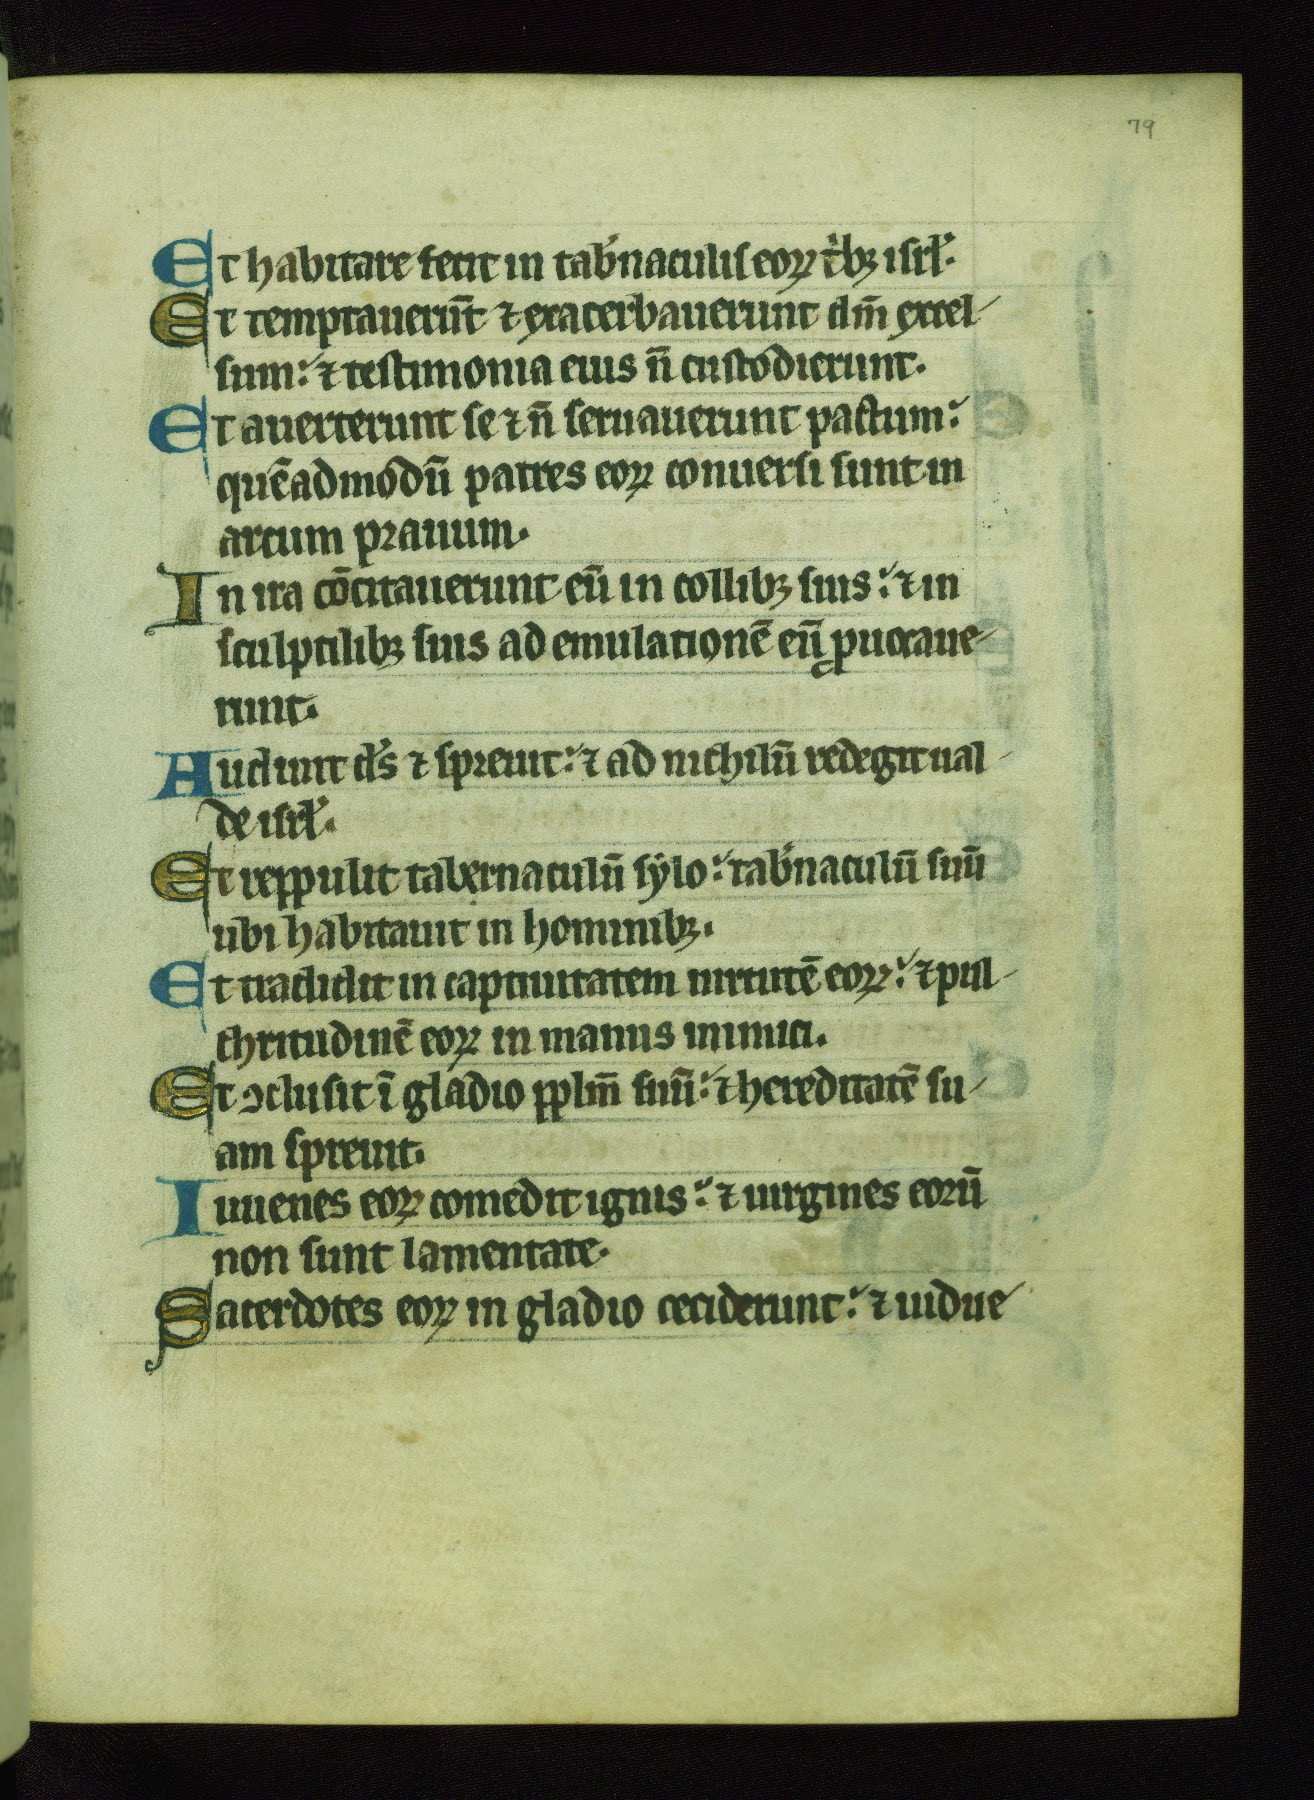 79
Et habitare fecit in tab̾naculis eoꝝ t̾bꝫ isrł.
Et temptauerūt ⁊ exacerbauerunt dm̄ excel-
sum: ⁊ testimonia eius n̄ custodierunt.
Et auerterunt se ⁊ n̄ seruauerunt pactum:
quēadmodū patres eoꝝ conuersi sunt in
arcum prauum.
In ira cōcitauerunt eū in collibꝫ suis: ⁊ in
sculptilibꝫ suis ad emulationē eū ꝓuocaue-
runt.
Audiuit d̾s ⁊ spreuit: ⁊ ad nichilū redegit ual-
de isrł.
Et reppulit tabernaculū sẏlo: tab̾naculū suū
ubi habitauit in hominibꝫ.
Et tradidit in captiuitatem uirtutē eoꝝ: ⁊ pul-
chritudinē eoꝝ in manus inimici.
Et ↄclusit ī gladio pplm̄ suū: ⁊ hereditatē su-
am spreuit.
Iuuenes eoꝝ comedit ignis: ⁊ uirgines eorū
non sunt lamentate.
Sacerdotes eoꝝ in gladio ceciderunt: ⁊ uidue